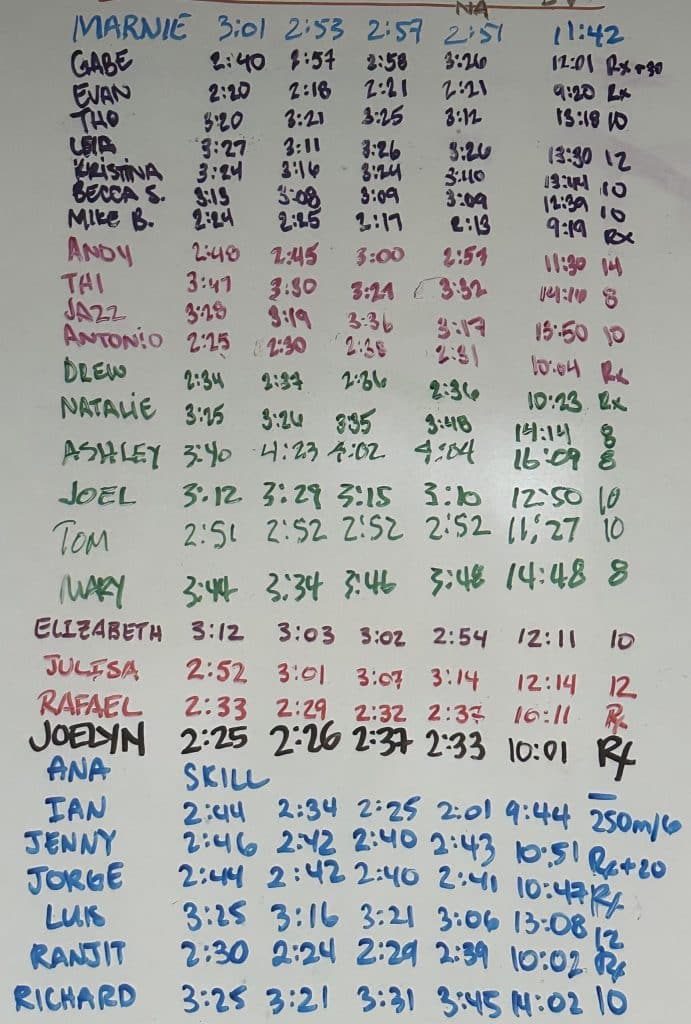 NA
MARNIE 3:01 2:53 2:57 2:51 11:42
GABE 2:40 2:57 2:58 3:26 12:01 Rx+30
EVAN 2:20 2:18 2:21 2:21 9:20 Rx
THO 3:20 3:21 3:25 3:12 13:18 10
LEIA 3:27 3:11 3:26 3:26 13:30 12
KRISTINA 3:24 3:16 3:24 3:40 13:44 10
BECCA S. 3:13 3:08 3:09 3:09 12:39 10
MIKE B. 2:24 2:25 2:17 2:13 9:19 Rx
ANDY 2:48 2:45 3:00 2:57 11:30 14
THI 3:47 3:30 3:21 3:32 14:10 8
JAZZ 3:28 3:19 3:36 3:17 13:50 10
ANTONIO 2:25 2:30 2:38 2:31 10:04 Rx
DREW 2:34 2:37 2:36 2:36 10:23 Rx
NATALIE 3:25 3:26 3:35 3:48 14:14 8
ASHLEY 3:40 4:23 4:02 4:04 16:09 8
JOEL 3:12 3:29 3:15 3:10 12:50 10
TOM 2:51 2:52 2:52 2:52 11:27 10
MARY 3:44 3:34 3:46 3:48 14:48 8
ELIZABETH 3:12 3:03 3:02 2:54 12:11 10
JULISA 2:52 3:01 3:07 3:14 12:14 12
RAFAEL 2:33 2:29 2:32 2:37 10:11 Rx
JOELYN 2:25 2:26 2:37 2:33 10:01 Rx
ANA SKILL
IAN 2:44 2:34 2:25 2:01 9:44 250m/6
JENNY 2:46 2:42 2:40 2:43 10:51 Rx+20
JORGE 2:44 2:42 2:40 2:41 10:47 Rx
LUIS 3:25 3:16 3:21 3:06 13:08 12
RANJIT 2:30 2:24 2:29 2:39 10:02 Rx
RICHARD 3:25 3:21 3:31 3:45 14:02 10